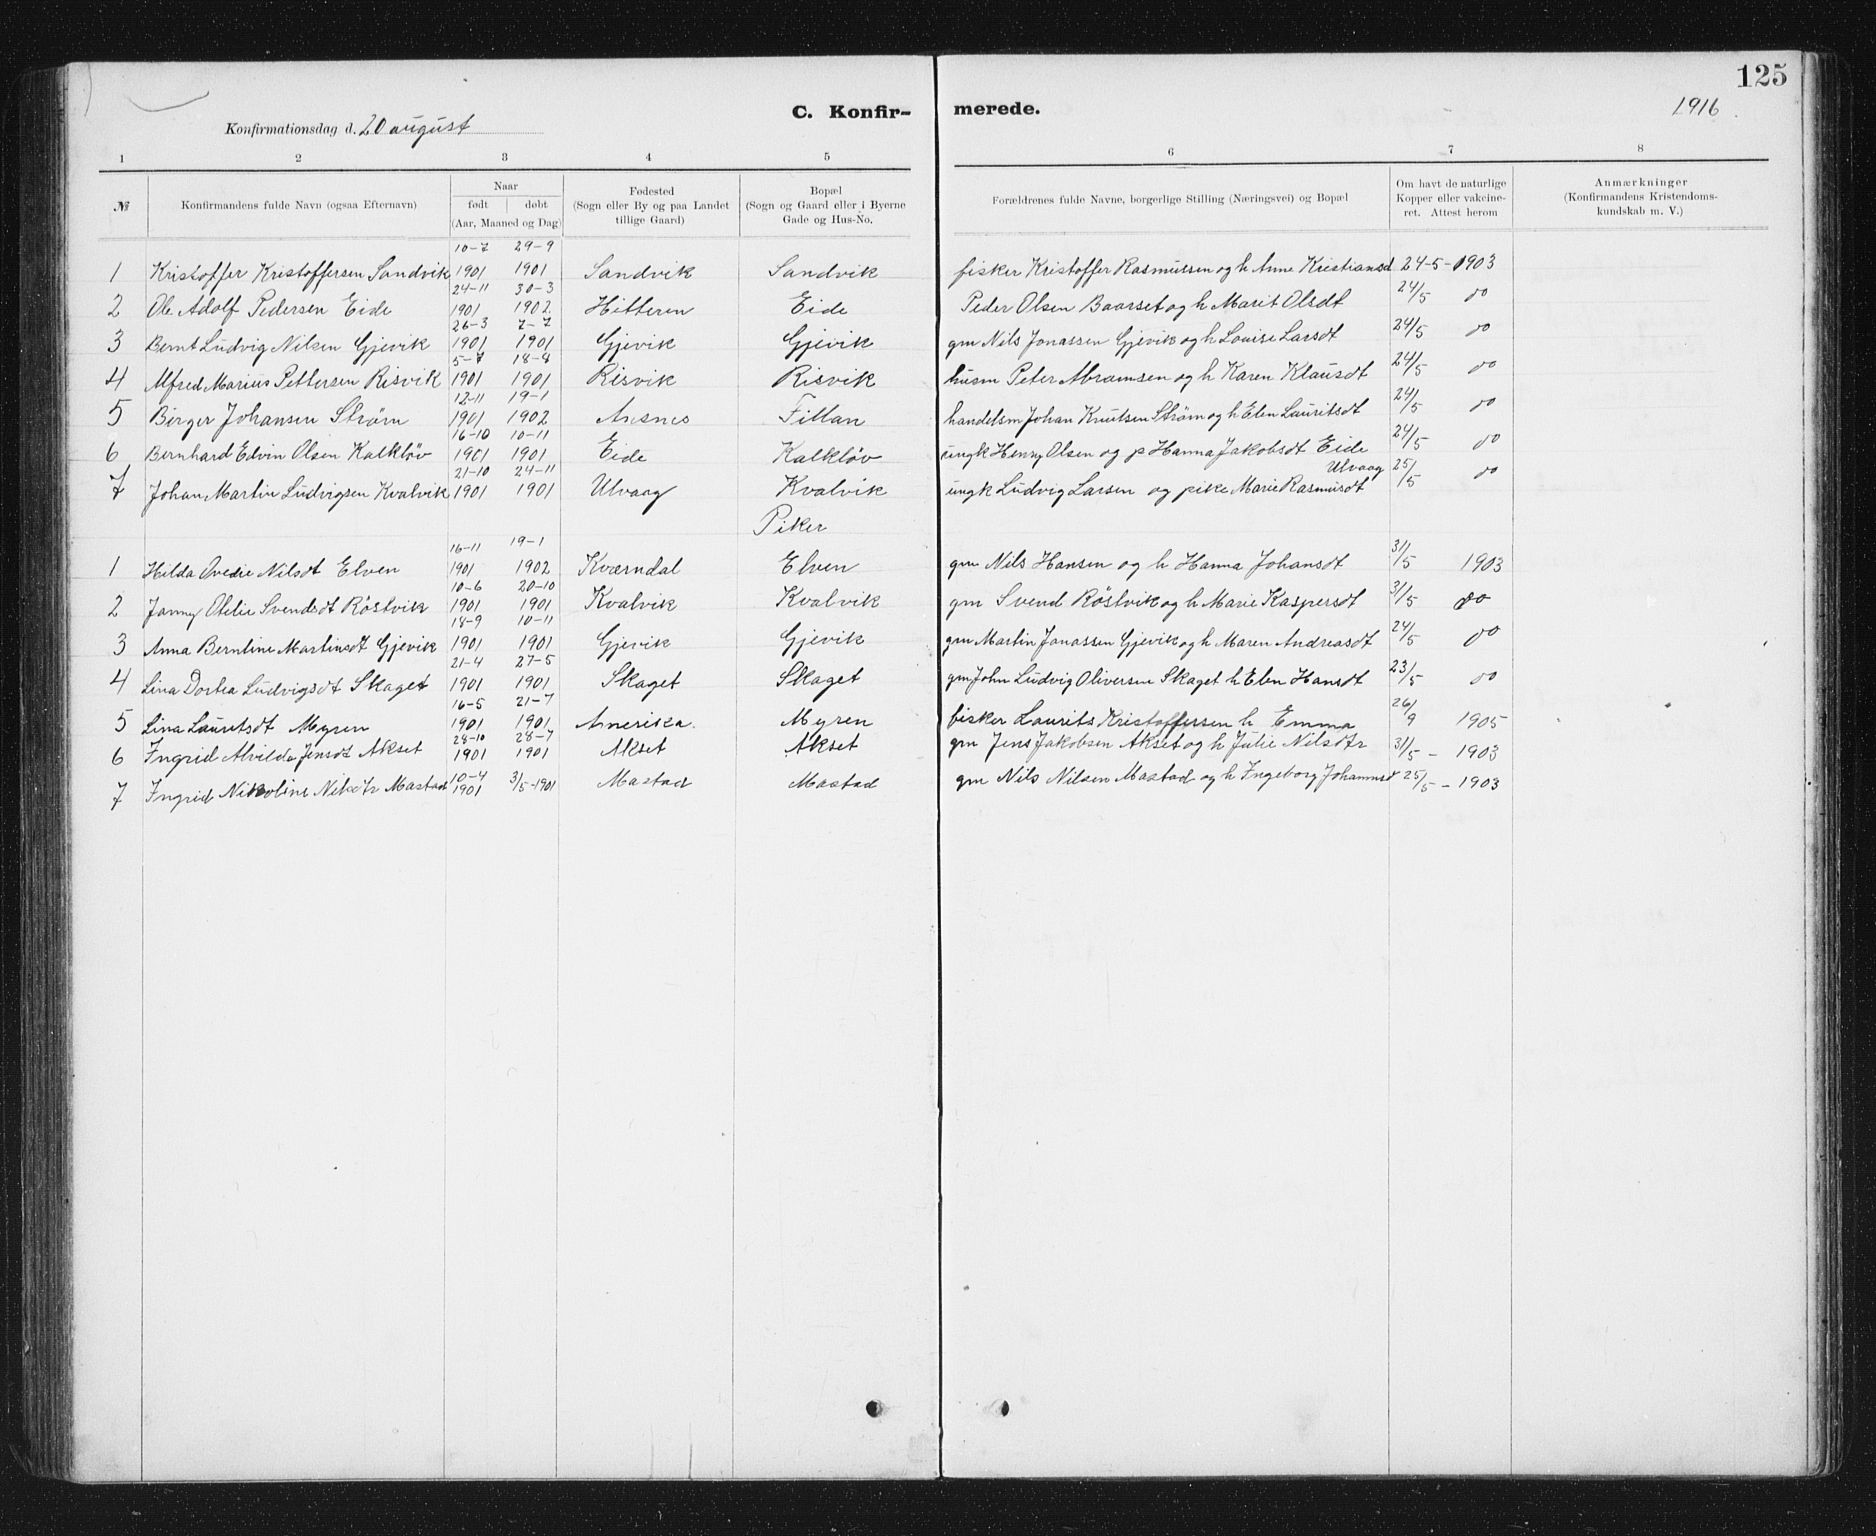 125
C. Konfir- merede.
1916
Konfirmationsdag d. 20 august
1 2 3 4 5 6 7 8
№ Konfirmandens fulde Navn (ogsaa Efternavn) Naar født døbt (Aar, Maaned og Dag) Fødested (Sogn eller By og paa Landet tillige Gaard) Bopæl (Sogn og Gaard eller i Byerne Gade og Hus-No. Forældrenes fulde Navne, borgerlige Stilling (Næringsvei) og Bopæl Om havt de naturlige Kopper eller vakcineret. Attest herom Anmærkninger (Konfirmandens Kristendomskundskab m. V.)
1 Kristoffer Kristoffersen Sandvik 10-7 1901 29-9 1901 Sandvik Sandvik fisker Kristoffer Rasmussen og h Anne Kristiansd 24-5-1903
2 Ole Adolf Pedersen Eide 24-11 1901 30-3 1902 Hitteren Eide Peder Olsen Baarset og h Marit Olsdt 24/5 do
3 Bernt Ludvig Nilsen Gjevik 26-3 1901 7-7 1901 Gjevik Gjevik gm Nils Jonassen Gjevik og h Louise Larsdt 24/5 do
4 Alfred Marius Pettersen Risvik 5-7 1901 18-8 1901 Risvik Risvik husm Peter Abramsen og h Karen Klausdt 24/5 do
5 Birger Johansen Strøm 12-11 1901 19-1 1902 Ansnes Fillan handelsm Johan Knutsen Strøm og h Elen Lauritsdt 24/5 do
6 Bernhard Edvin Olsen Kalkløv 16-10 1901 10-11 1901 Eide Kalkløv ungk Henny Olsen og p Hanna Jakobsdt Eide 24/5 do
7 Johan Martin Ludvigsen Kvalvik 21-10 1901 24-11 1901 Ulvaag Kvalvik ungk Ludvig Larsen og pike Marie Rasmusdt Ulvaag 25/5 do
Piker
1 Hilda Ovedie Nilsdt Elven 16-11 1901 19-1 1902 Kværndal Elven gm Nils Hansen og h Hanna Johansdt 31/5 1903
2 Janny Otelie Svendsdt Röstvik 10-6 1901 20-10 1901 Kvalvik Kvalvik gm Svend Röstvik og h Marie Kaspersdt 31/5 do
3 Anna Berntine Martinsdt Gjevik 18-9 1901 10-11 1901 Gjevik Gjevik gm Martin Jonassen Gjevik og h Maren Andreasdt 24/5 do
4 Lina Dortea Ludvigsdt Skaget 21-4 1901 27-5 1901 Skaget Skaget gm John Ludvig Oliversen Skaget h Elen Hansdt 23/5 do
5 Lina Lauritsdt Myren 16-5 1901 21-7 1901 Amerika. Myren fisker Laurits Kristoffersen h Emma 26/9 1905
6 Ingrid Alvilda Jensdt Akset 28-10 1901 28-7 1901 Akset Akset gm Jens Jakobsen Akset og h Julie Nilsdtr 31/5 - 1903
7 Ingrid Nikoline Nilsdtr Mastad 10-4 1901 3/5-1901 Mastad Mastad gm Nils Nilsen Mastad og h Ingeborg Johannsd 25/5 - 1903